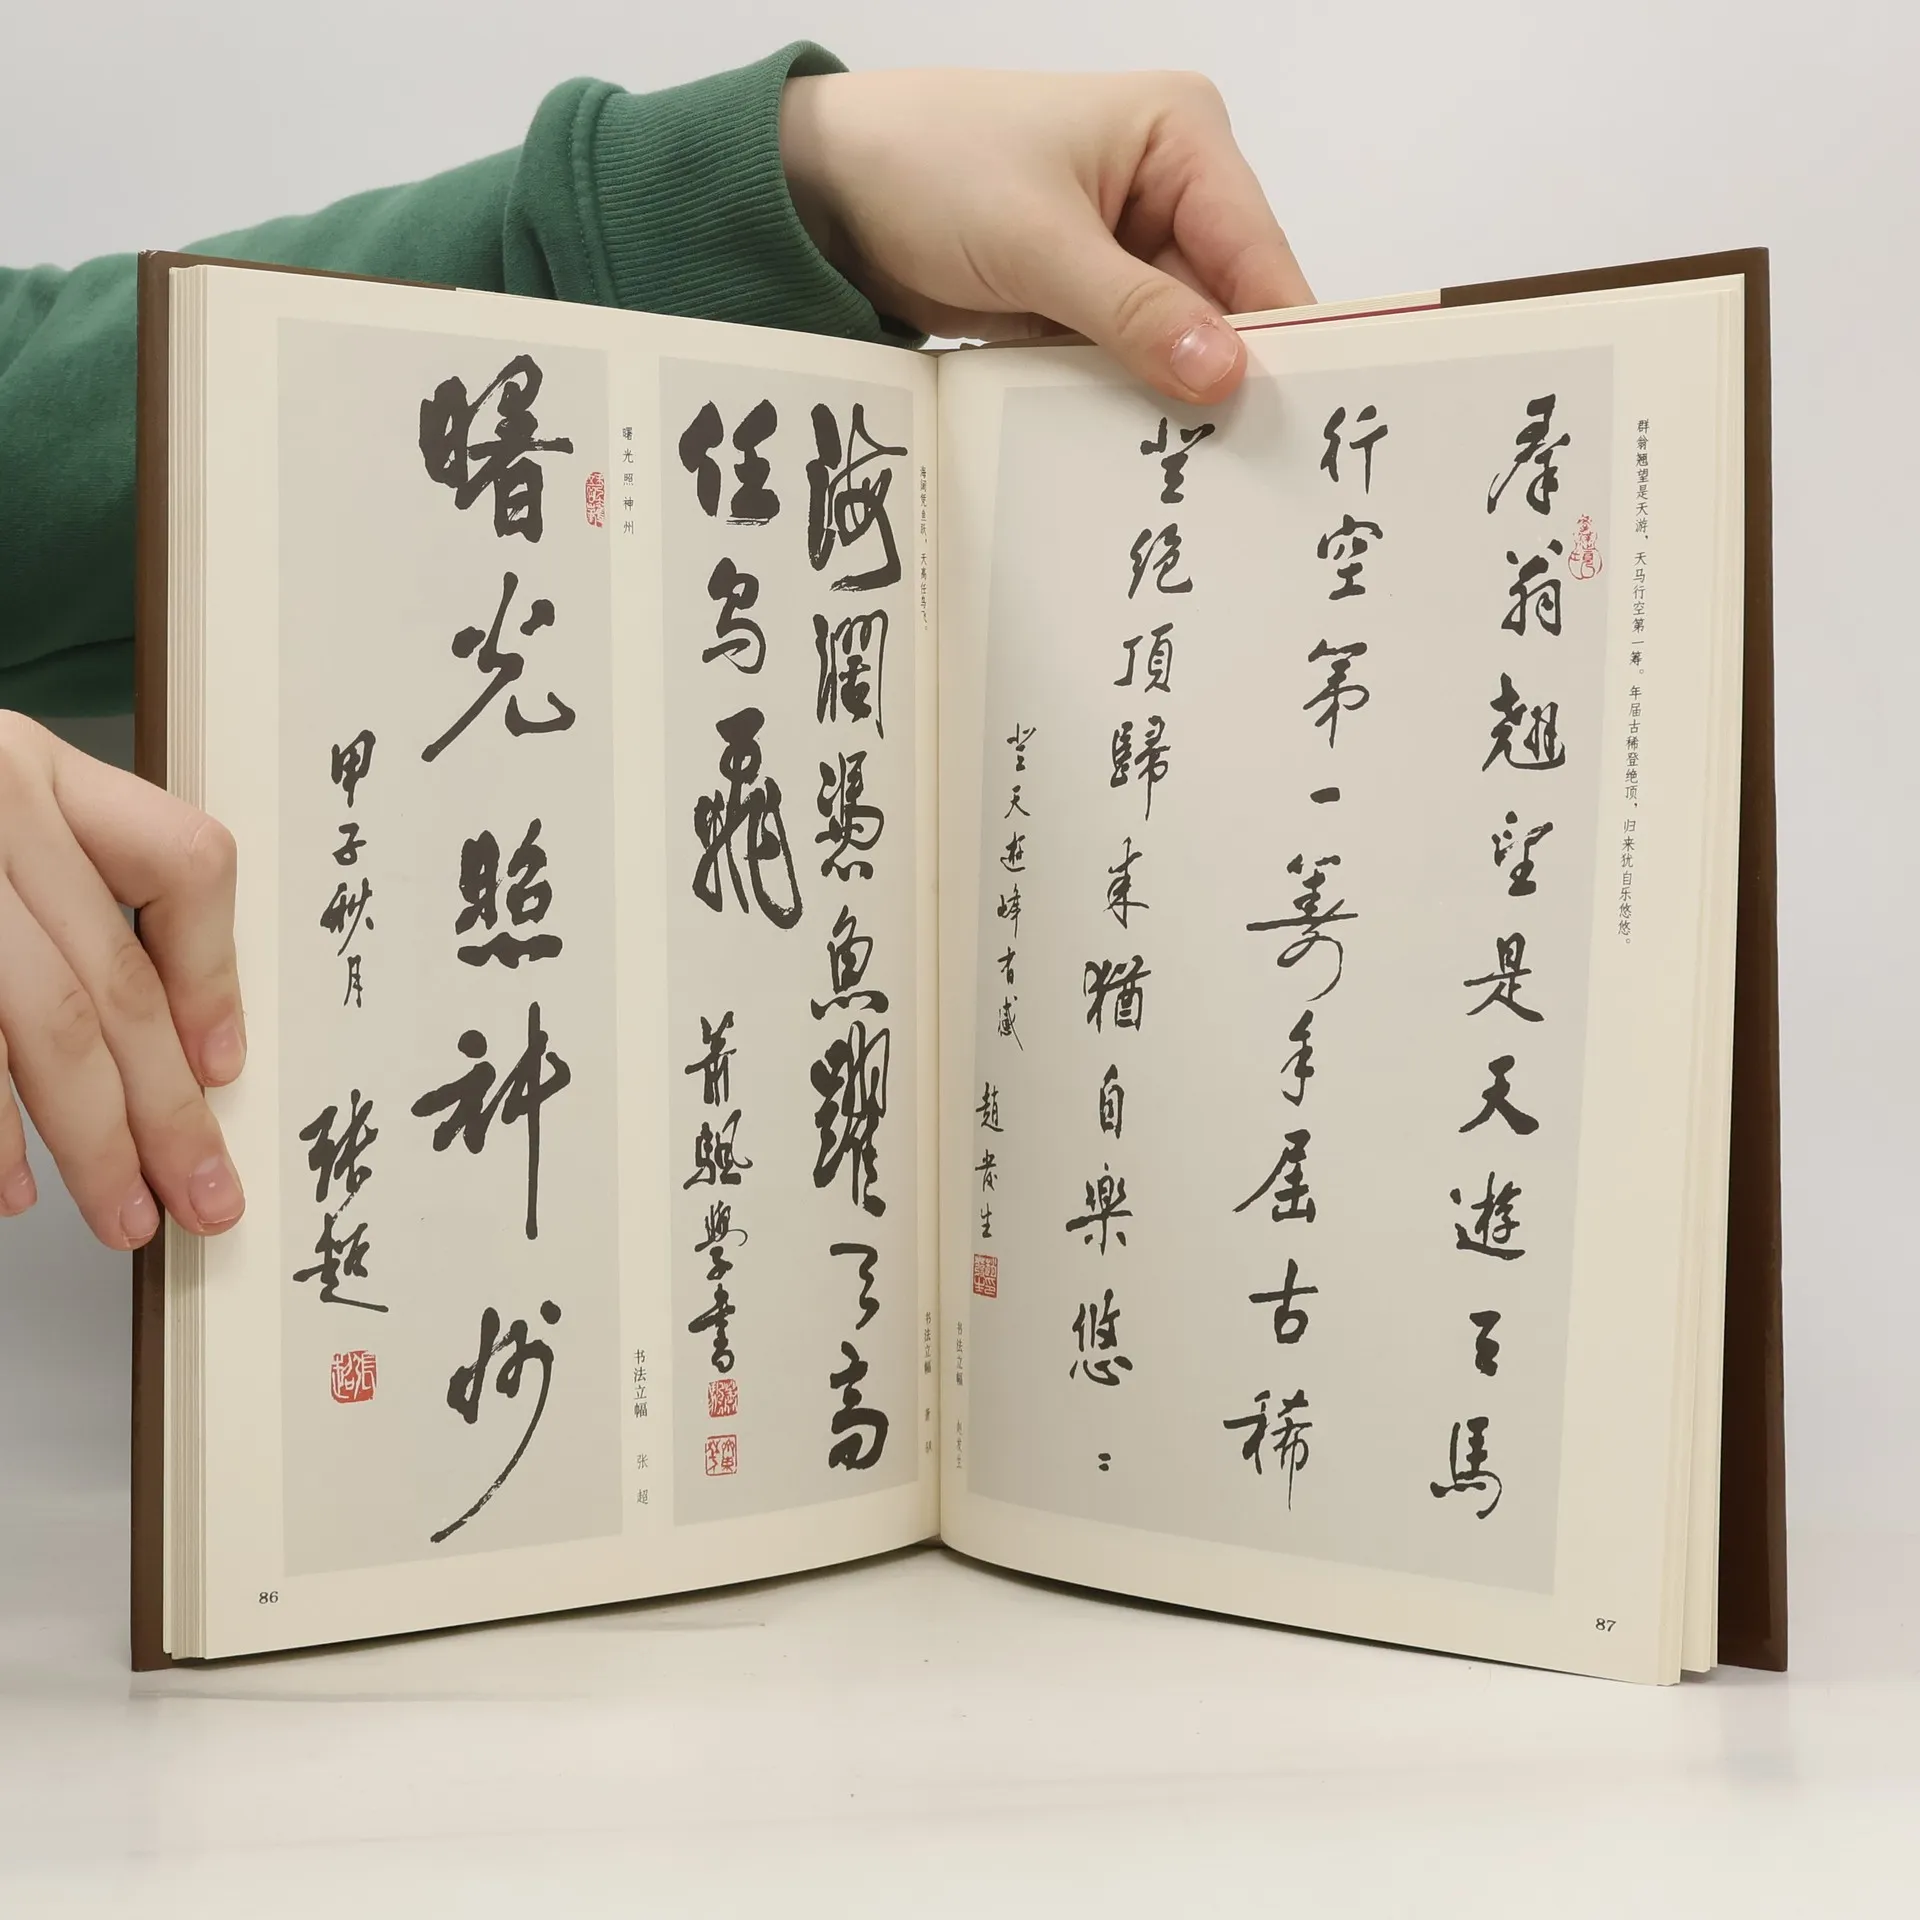 曙光照神州
甲子秋月
张超
曙光照神州
书法立幅 张超
86
海阔凭鱼跃了高
任鸟飛
萧颿學書
海阔凭鱼跃，天高任鸟飞。
书法立幅 萧
群翁翘望是天游，天马行空第一筹。年届古稀登绝顶，归来犹自乐悠悠。
羣翁翹望是天遊天馬
行空第一籌年届古稀
登绝頂歸来猶自樂悠〻
登天遊峰有感
趙发生
书法立幅 赵发生
87